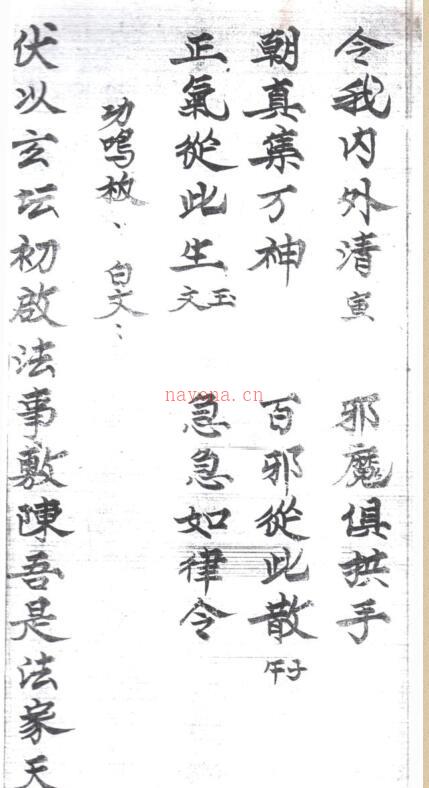 令我内外清寅 邪魔俱拱手
朝真集万神 百邪從此散子午
正氣從此生玉文 急急如律令
功鳴板、白文：
伏以玄坛初啟法事敷陳吾是法家天
nayona.cn